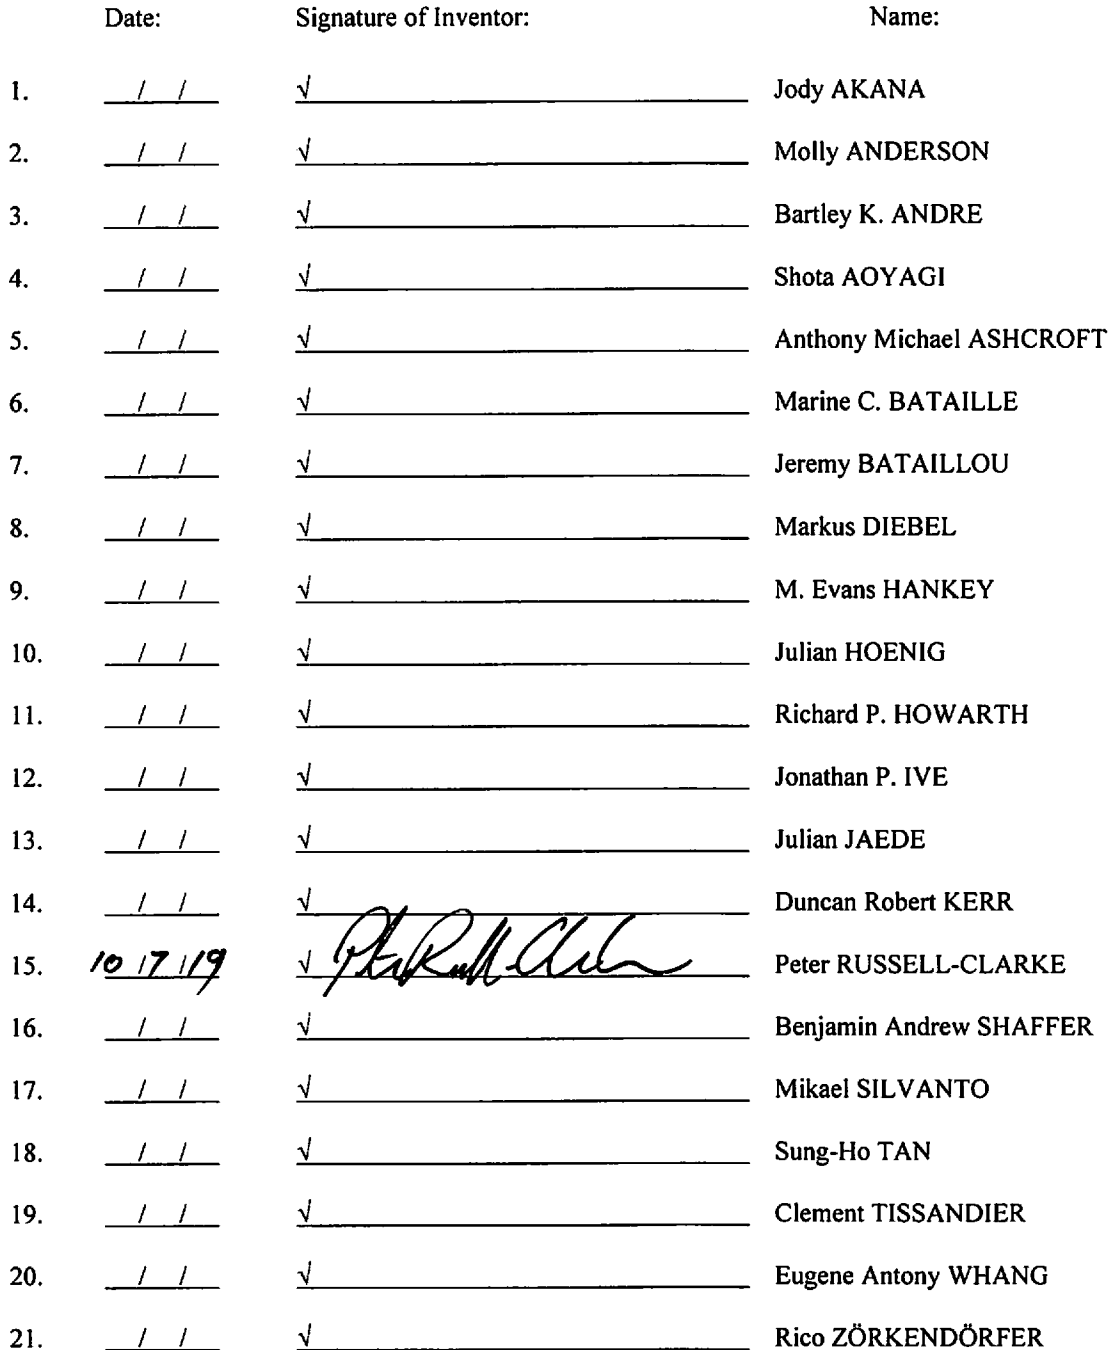 Date: Signature of Inventor: Name:
1. / / √ Jody AKANA
2. / / √ Molly ANDERSON
3. / / √ Bartley K. ANDRE
4. / / √ Shota AOYAGI
5. / / √ Anthony Michael ASHCROFT
6. / / √ Marine C. BATAILLE
7. / / √ Jeremy BATAILLOU
8. / / √ Markus DIEBEL
9. / / √ M. Evans HANKEY
10. / / √ Julian HOENIG
11. / / √ Richard P. HOWARTH
12. / / √ Jonathan P. IVE
13. / / √ Julian JAEDE
14. / / √ Duncan Robert KERR
15. 10 / 7 / 19 √ Peter RUSSELL-CLARKE
16. / / √ Benjamin Andrew SHAFFER
17. / / √ Mikael SILVANTO
18. / / √ Sung-Ho TAN
19. / / √ Clement TISSANDIER
20. / / √ Eugene Antony WHANG
21. / / √ Rico ZÖRKENDÖRFER